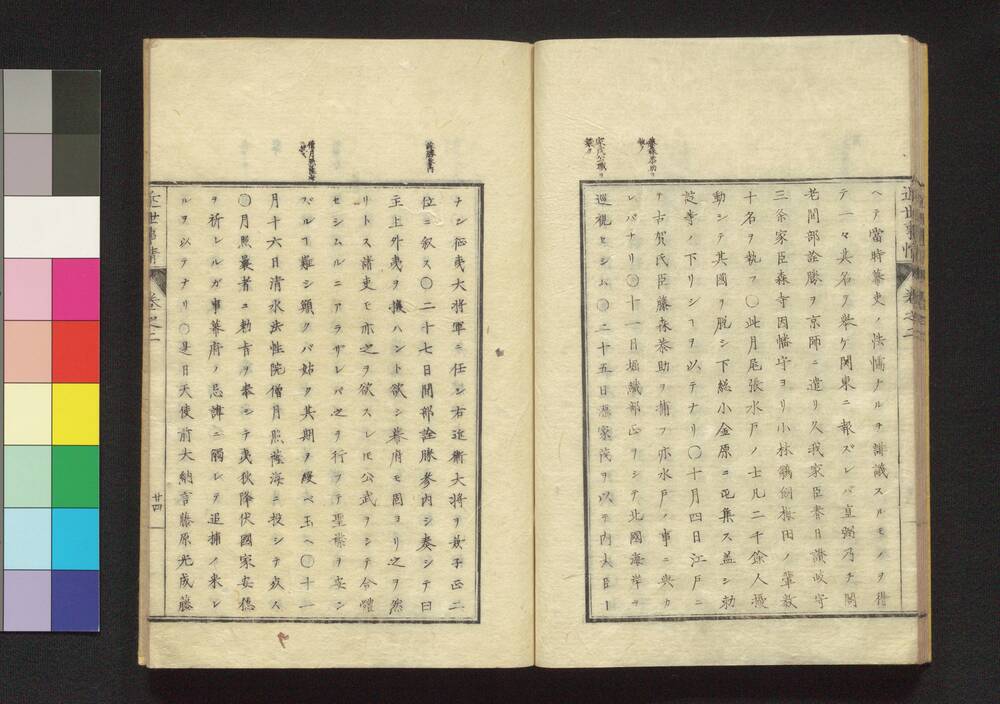 近世事情 卷之二
ヘテ當時幕吏ノ怯懦ナルヲ誹議スルモノヲ得
テ一々其名ヲ舉ケ関東ニ報ズレバ直弼乃チ間
老間部詮勝ヲ京師ニ遣リ久我家臣春日讃岐守
三条家臣森寺因幡守ヨリ小林 梅田ノ輩数
十名ヲ執フ〇此月尾張水戸ノ士凡二千餘人擾
動シテ其國ヲ脱シ下総小金原ニ屯集ス蓋シ勅
ノ下リシヿヲ以テナリ〇十月四日江戸ニ
テ古賀氏臣藤森恭助ヲ捕フ亦水戸ノ事ニ與カ
レバナリ〇十一日堀織部正ヲシテ北國海岸ヲ
巡視セシム〇二十五日 家茂ヲ以テ内大臣ニ
藤森恭助ヲ
家茂公職ヲ
ナシ征夷大将軍ニ任シ右近衛大将ヲ 子正二
位ニ叙ス〇二十七日間部詮勝参内シ奏シテ曰
主上外夷ヲ攘ハント欲シ幕府モ固ヨリ之ヲ然
リトス諸吏モ亦之ヲ欲スレ𪜈公武ヲシテ合體
セシムルニアラザレバ之ヲ行フテ聖襟ヲ安ン
ズル丁難シ願クバ姑ク其期ヲ緩ベ玉ヘ〇十一
月十六日清水法性院僧月照薩海ニ投シテ死ス
〇月照曩者ニ勅旨ヲ奉シテ夷狄降伏國家安穏
ヲ祈レルガ事幕府ノ忌諱ニ觸レテ追捕ノ来レ
ルヲ以テナリ〇是日天使前大納言藤原光成藤
詮勝参内
近世事情 卷之二
廿四